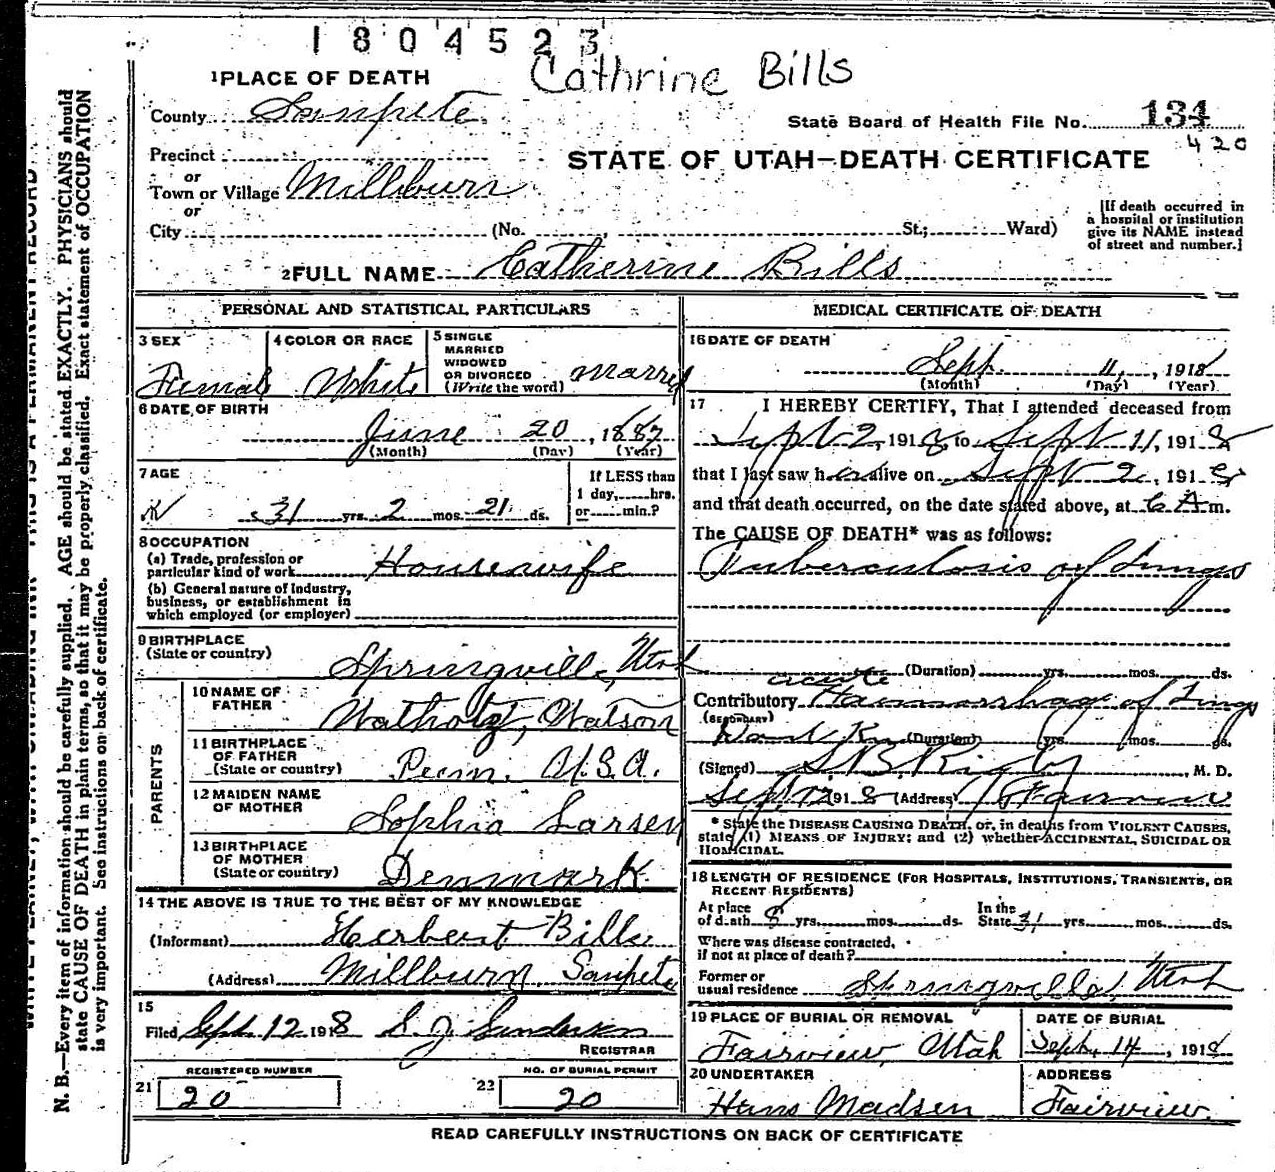 1804523
Cathrine Bills
1 PLACE OF DEATH
County Sanpete
State Board of Health File No. 134
420
STATE OF UTAH—DEATH CERTIFICATE
Precinct
or
Town or Village Millburn
or
City (No. , St.; Ward)
[If death occurred in
a hospital or institution
give its NAME instead
of street and number.]
2 FULL NAME Catherine Bills
N. B.—Every item of information should be carefully supplied. AGE should be stated EXACTLY. PHYSICIANS should
state CAUSE OF DEATH in plain terms, so that it may be properly classified. Exact statement of OCCUPATION
is very important. See instructions on back of certificate.
PERSONAL AND STATISTICAL PARTICULARS
3 SEX
Female
4 COLOR OR RACE
White
5 SINGLE
MARRIED
WIDOWED
OR DIVORCED
(Write the word) Married
6 DATE OF BIRTH
June 20, 1887
(Month) (Day) (Year)
7 AGE
31 yrs. 2 mos. 21 ds.
If LESS than
1 day, hrs.
or min.?
8 OCCUPATION
(a) Trade, profession or
particular kind of work Housewife
(b) General nature of industry,
business, or establishment in
which employed (or employer)
9 BIRTHPLACE
(State or country)
Springville, Utah
PARENTS
10 NAME OF
FATHER
Watson
11 BIRTHPLACE
OF FATHER
(State or country) Penn. U.S.A.
12 MAIDEN NAME
OF MOTHER
Sophia Larsen
13 BIRTHPLACE
OF MOTHER
(State or country) Denmark
14 THE ABOVE IS TRUE TO THE BEST OF MY KNOWLEDGE
(Informant) Herbert Bills
(Address) Millburn Sanpete
15
Filed Sept. 12 1918
REGISTRAR
21 REGISTERED NUMBER
20
22 NO. OF BURIAL PERMIT
20
MEDICAL CERTIFICATE OF DEATH
16 DATE OF DEATH
Sept. 11, 1918
(Month) (Day) (Year)
17 I HEREBY CERTIFY, That I attended deceased from
Sept 2, 1918 to Sept 11, 1918
that I last saw her alive on Sept 2, 1918
and that death occurred, on the date stated above, at 6 A m.
The CAUSE OF DEATH* was as follows:
Tuberculosis of Lungs
(Duration) yrs. mos. ds.
acute
Contributory Haemorrhage of Lungs
(SECONDARY)
(Duration) yrs. mos. ds.
(Signed) , M. D.
Sept 12 1918 (Address) Fairview
* State the DISEASE CAUSING DEATH, or, in deaths from VIOLENT CAUSES,
state (1) MEANS OF INJURY; and (2) whether ACCIDENTAL, SUICIDAL OR
HOMICIDAL.
18 LENGTH OF RESIDENCE (FOR HOSPITALS, INSTITUTIONS, TRANSIENTS, OR
RECENT RESIDENTS)
At place
of death 8 yrs. mos. ds.
In the
State 31 yrs. mos. ds.
Where was disease contracted,
if not at place of death?
Former or
usual residence Springville, Utah
19 PLACE OF BURIAL OR REMOVAL
Fairview, Utah
DATE OF BURIAL
Sept. 14, 1918
20 UNDERTAKER
Hans Madsen
ADDRESS
Fairview.
READ CAREFULLY INSTRUCTIONS ON BACK OF CERTIFICATE